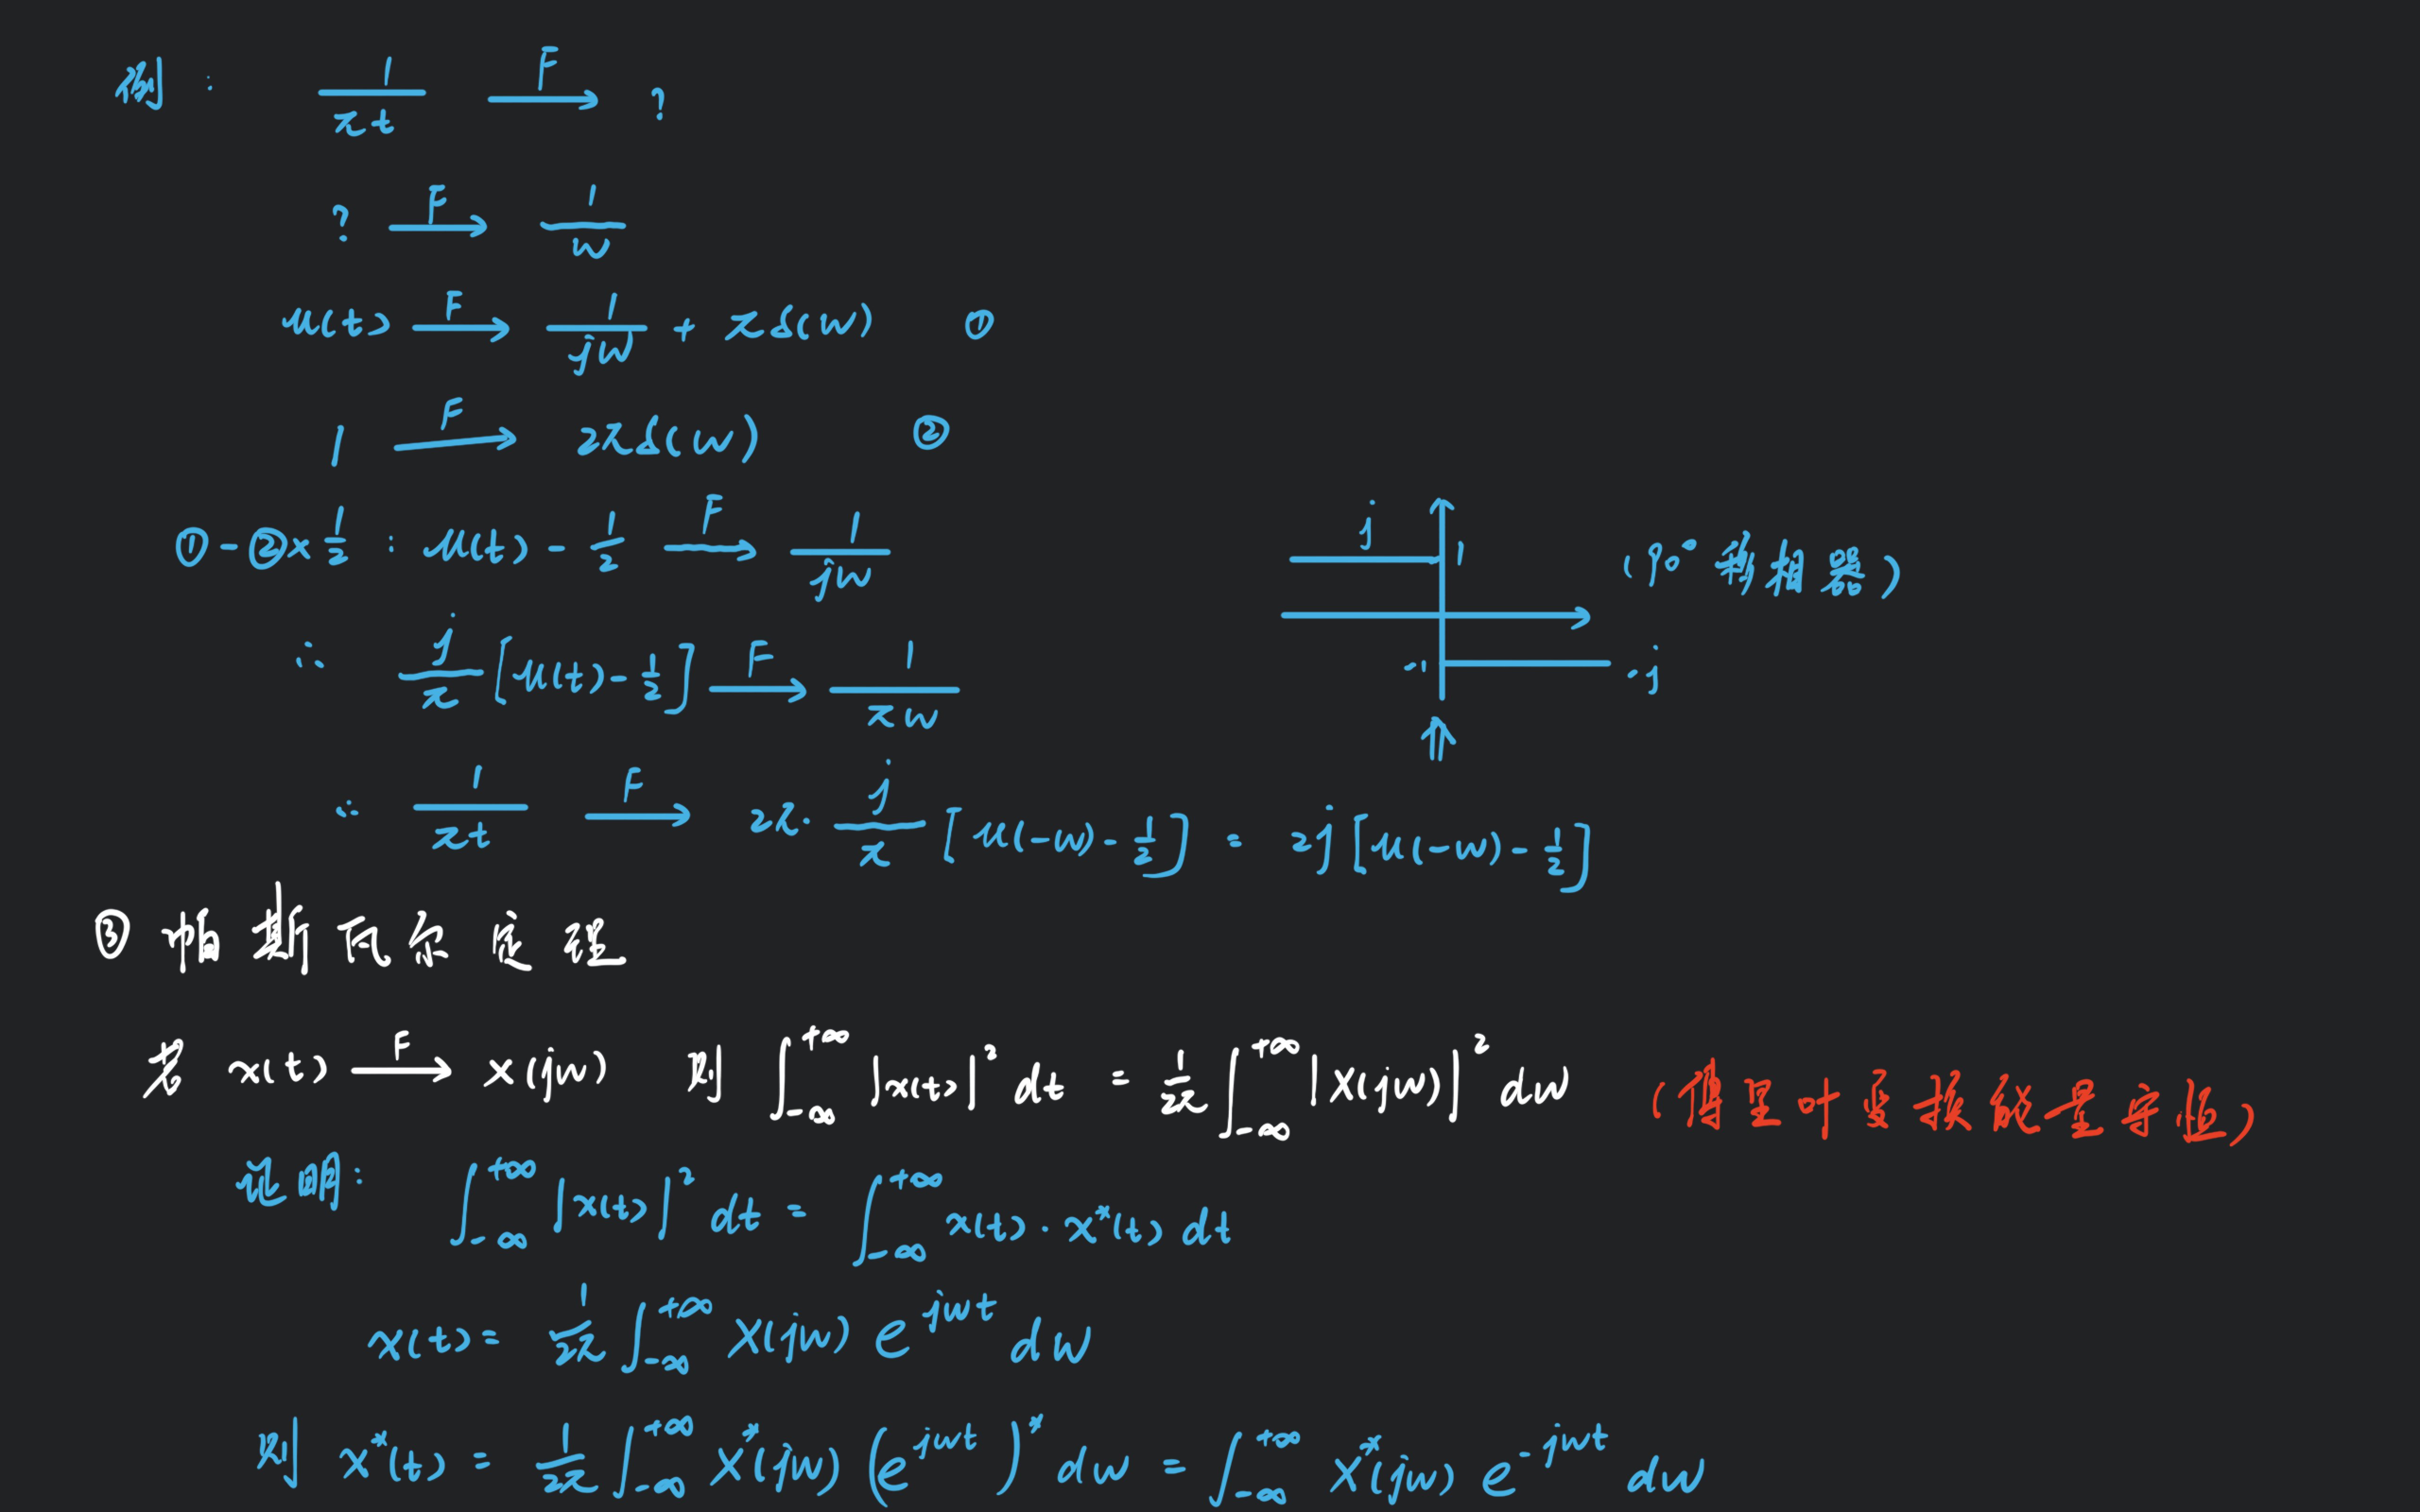 例: 1/πt —F→ ?
? —F→ 1/w
u(t) —F→ 1/jw + πδ(w) ①
1 —F→ 2πδ(w) ②
①-②×1/2 : u(t) - 1/2 —F→ 1/jw
∴ j/π [u(t) - 1/2] —F→ 1/πw
j 1 (90°移相器)
-1 -j
∴ 1/πt —F→ 2π· j/π [u(-w) - 1/2] = 2j [u(-w) - 1/2]
③ 帕斯瓦尔定理
若 x(t) —F→ X(jw) 则 ∫_{-∞}^{+∞} |x(t)|² dt = 1/2π ∫_{-∞}^{+∞} |X(jw)|² dw (傅里叶变换能量守恒)
证明: ∫_{-∞}^{+∞} |x(t)|² dt = ∫_{-∞}^{+∞} x(t)·x*(t) dt
x(t) = 1/2π ∫_{-∞}^{+∞} X(jw) e^{jwt} dw
则 x*(t) = 1/2π ∫_{-∞}^{+∞} X*(jw) (e^{jwt})* dw = ∫_{-∞}^{+∞} X*(jw) e^{-jwt} dw